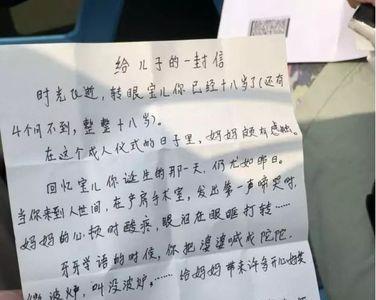 给儿子的一封信
时光飞逝，转眼宝儿你已经十八岁了(还有
4个月不到，整整十八岁)。
在这个成人仪式的日子里，妈妈颇有感触。
回忆宝儿你诞生的那一天，仍尤如昨日。
当你来到人世间，在产房手术室，发出第一声啼哭时，
妈妈的心顿时酸疼，眼泪在眼眶打转……
牙牙学语的时候，你把婆婆喊成陀陀.
微波炉，叫没波炉，……给妈妈带来许多开心如笑